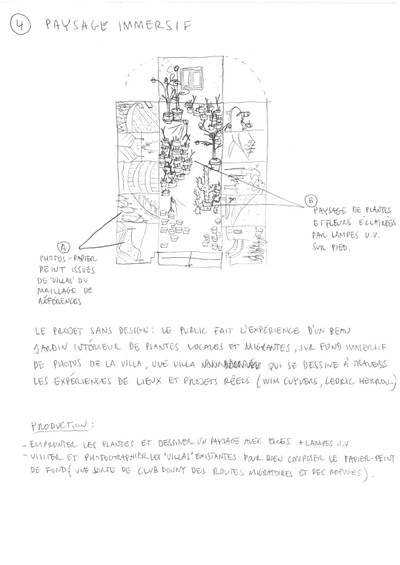 4 PAYSAGE IMMERSIF
A
PHOTOS-PAPIER
PEINT ISSUES
DE "VILLAS" DU
MAILLAGE DE
RÉFÉRENCES
B
PAYSAGE DE PLANTES
ET FLEURS ÉCLAIRÉES
PAR LAMPES U.V.
SUR PIED.
LE PROJET SANS DESIGN : LE PUBLIC FAIT L'EXPÉRIENCE D'UN BEAU
JARDIN INTÉRIEUR DE PLANTES LOCALES ET MIGRANTES, SUR FOND IMMERSIF
DE PHOTOS DE LA VILLA, UNE VILLA QUI SE DESSINE À TRAVERS
LES EXPÉRIENCES DE LIEUX ET PROJETS RÉELS (WIM CUYVERS, CEDRIC HERROU...)
PRODUCTION :
- EMPRUNTER LES PLANTES ET DESSINER UN PAYSAGE AVEC ELLES + LAMPES U.V.
- VISITER ET PHOTOGRAPHIER LES "VILLAS" EXISTANTES POUR BIEN COMPOSER LE PAPIER-PEINT
DE FOND (UNE SORTE DE CLUB DES ROUTES MIGRATOIRES ET DES REFUGES).